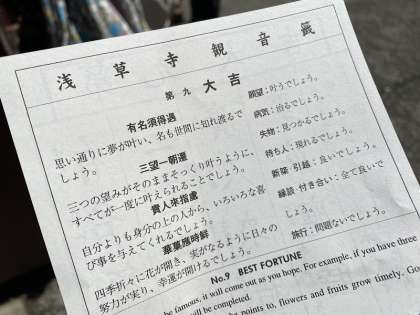 浅草寺観音籤
第九 大吉
有名須得遇
思い通りに夢が叶い、名も世間に知れ渡るで
しょう。
三望一朝遷
三つの望みがそのままそっくり叶うように、
すべてが一度に叶えられることでしょう。
貴人来指處
自分よりも身分の上の人から、いろいろな喜
び事を与えてくれるでしょう。
華菓應時鮮
四季折々に花が開き、実がなるように日々の
努力が実り、幸運が開けるでしょう。
願望:叶うでしょう。
病気:治るでしょう。
失物:見つかるでしょう。
待ち人:現れるでしょう。
新築・引越:良いでしょう。
縁談・付き合い:全て良いで
しょう。
旅行:問題ないでしょう。
No.9 BEST FORTUNE
be famous, it will come out as you hope. For example, if you have three
will be completed.
points to, flowers and fruits grow timely. Go